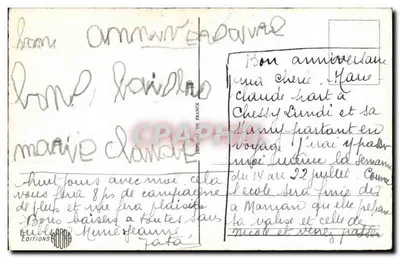 bon anniversaire
bons baisers
marie claude
Bon anniversaire
ma chérie. Marie
claude part à
Chessy Lundi et sa
partant en
voyage j'irai passer
moi même la semaine
du 14 au 22 juillet. Comme
l'école sera finie dis
à qu'elle prépare
sa valise et celle de
Nicole et venez passer
huit jours avec moi cela
vous fera 8 jrs de campagne
de plus et me fera plaisir
Bons baisers à toutes sans
Marie Jeanne.
Tata
EDITIONS